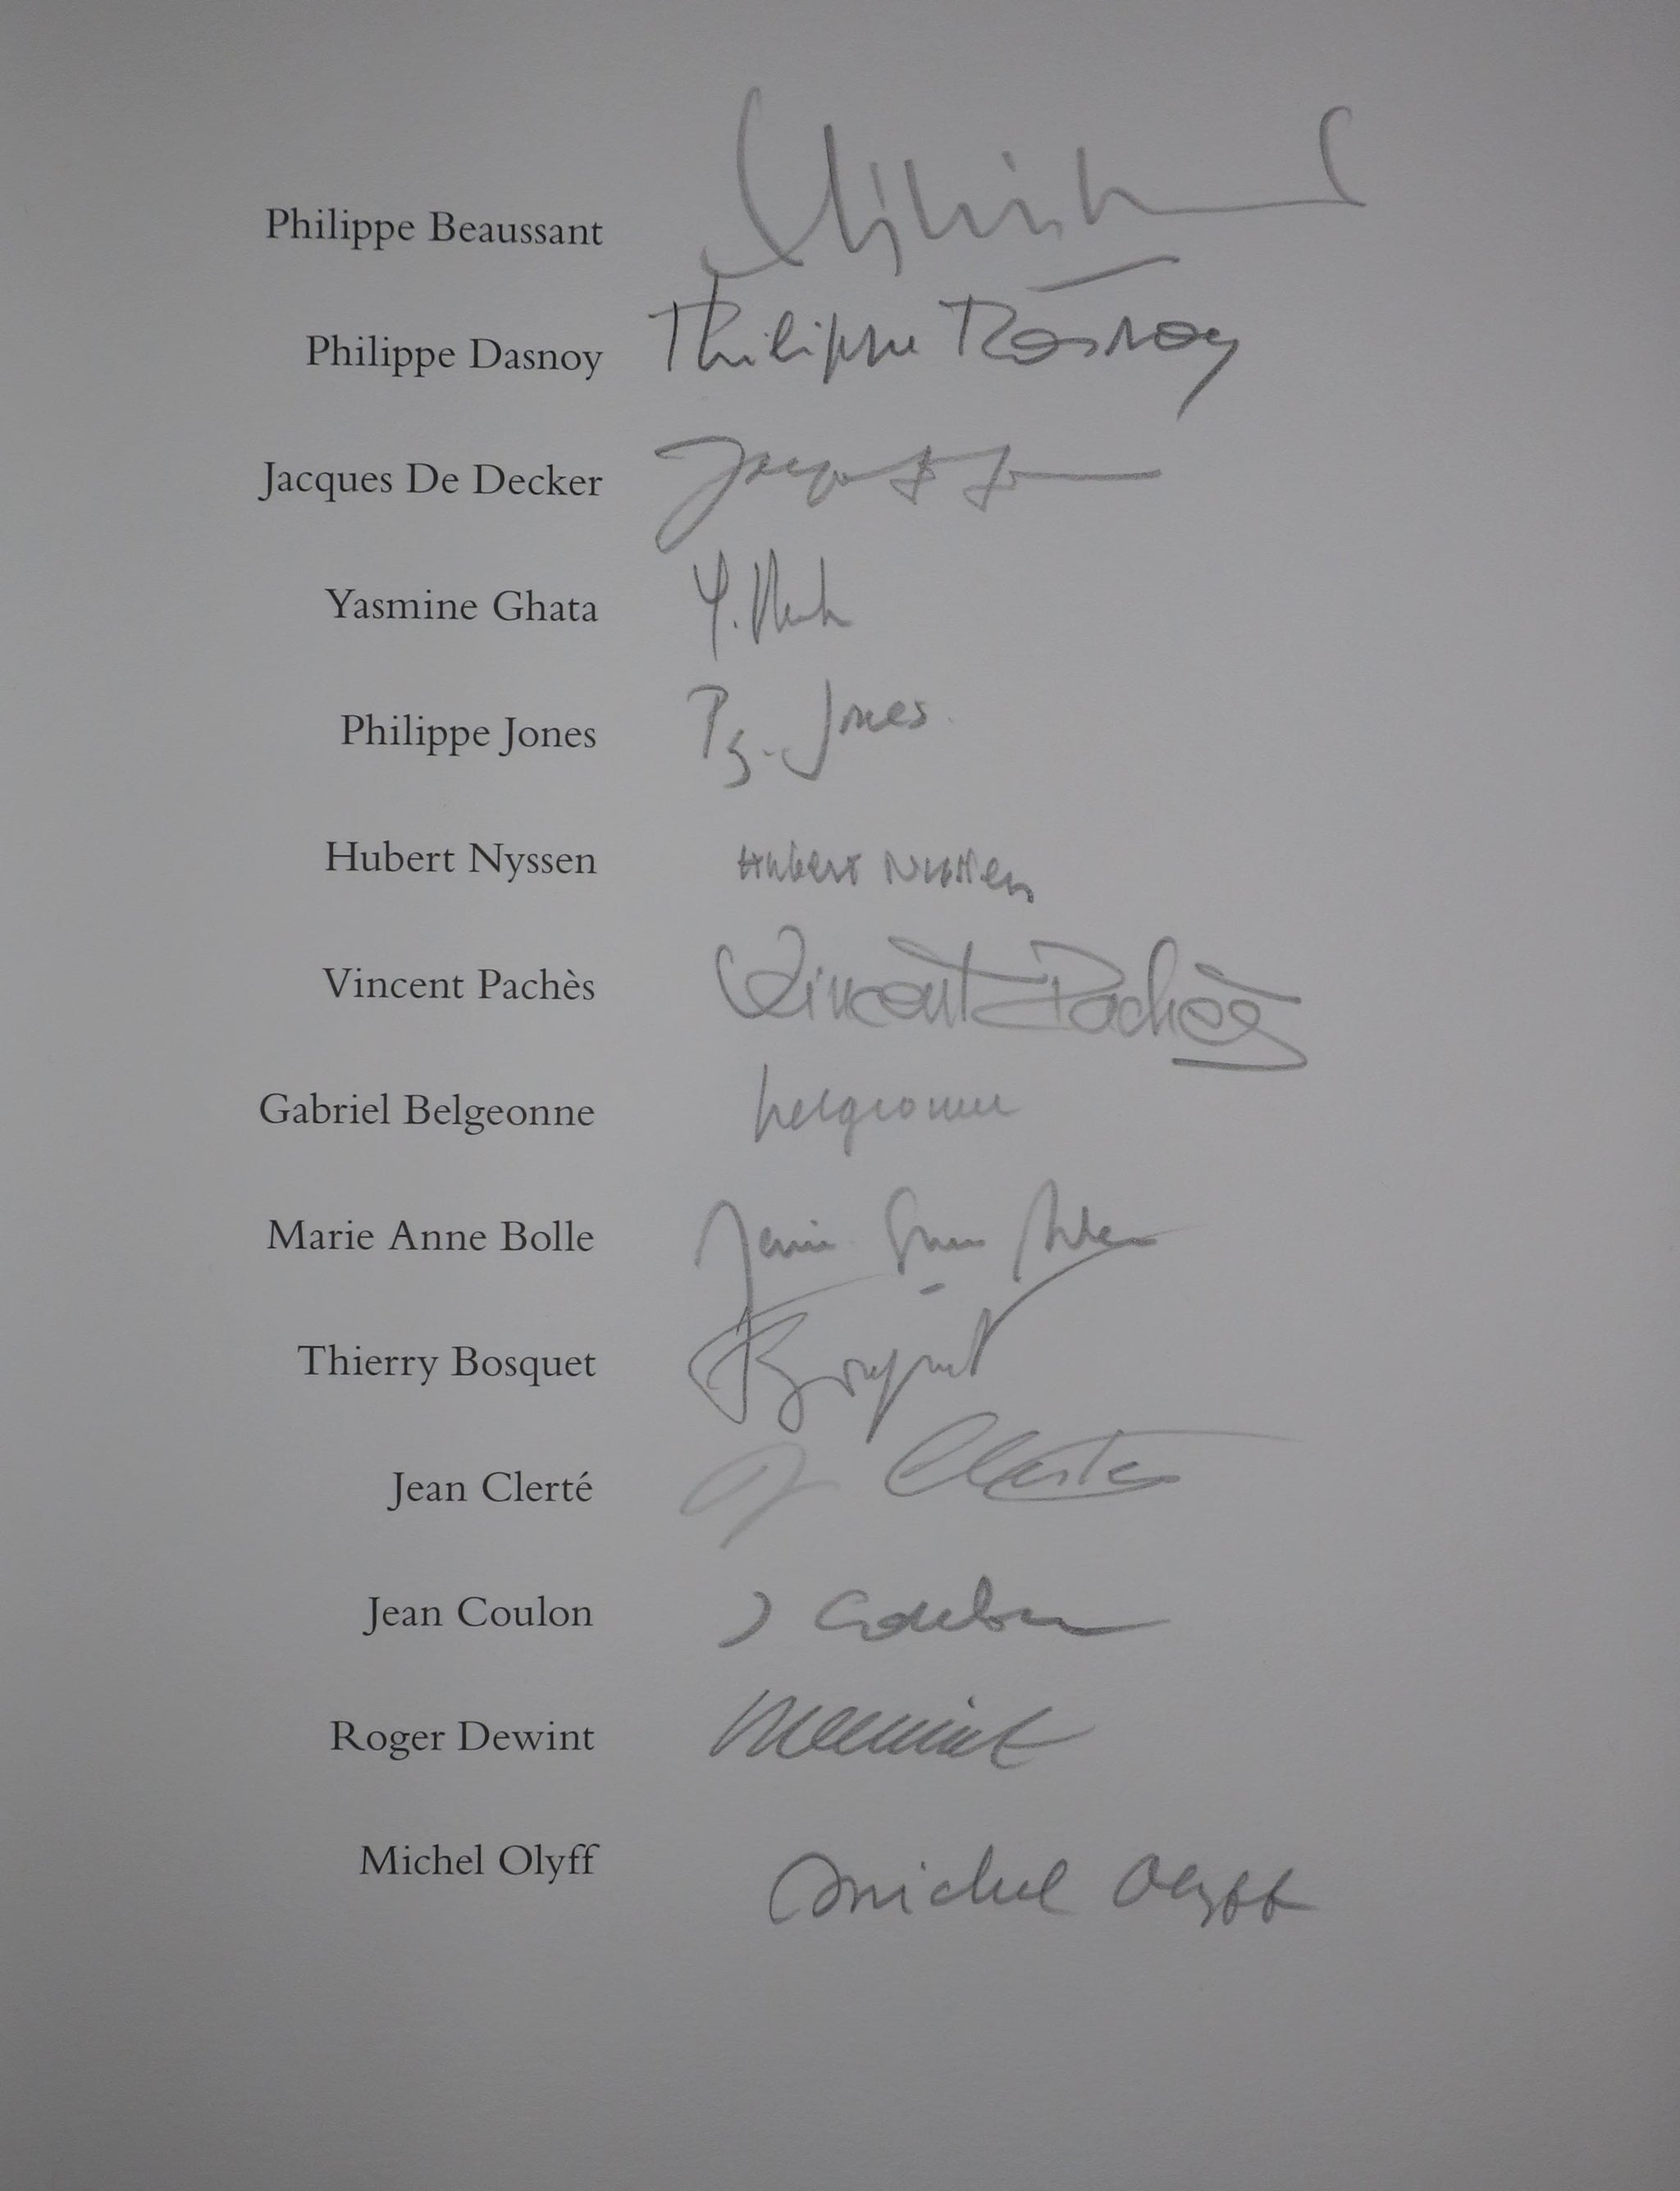 Philippe Beaussant
Philippe Dasnoy Philippe Dasnoy
Jacques De Decker
Yasmine Ghata
Philippe Jones Ph. Jones
Hubert Nyssen Hubert Nyssen
Vincent Pachès Vincent Pachès
Gabriel Belgeonne belgeonne
Marie Anne Bolle Marie Anne Bolle
Thierry Bosquet Bosquet
Jean Clerté J Clerté
Jean Coulon J Coulon
Roger Dewint Dewint
Michel Olyff michel Olyff